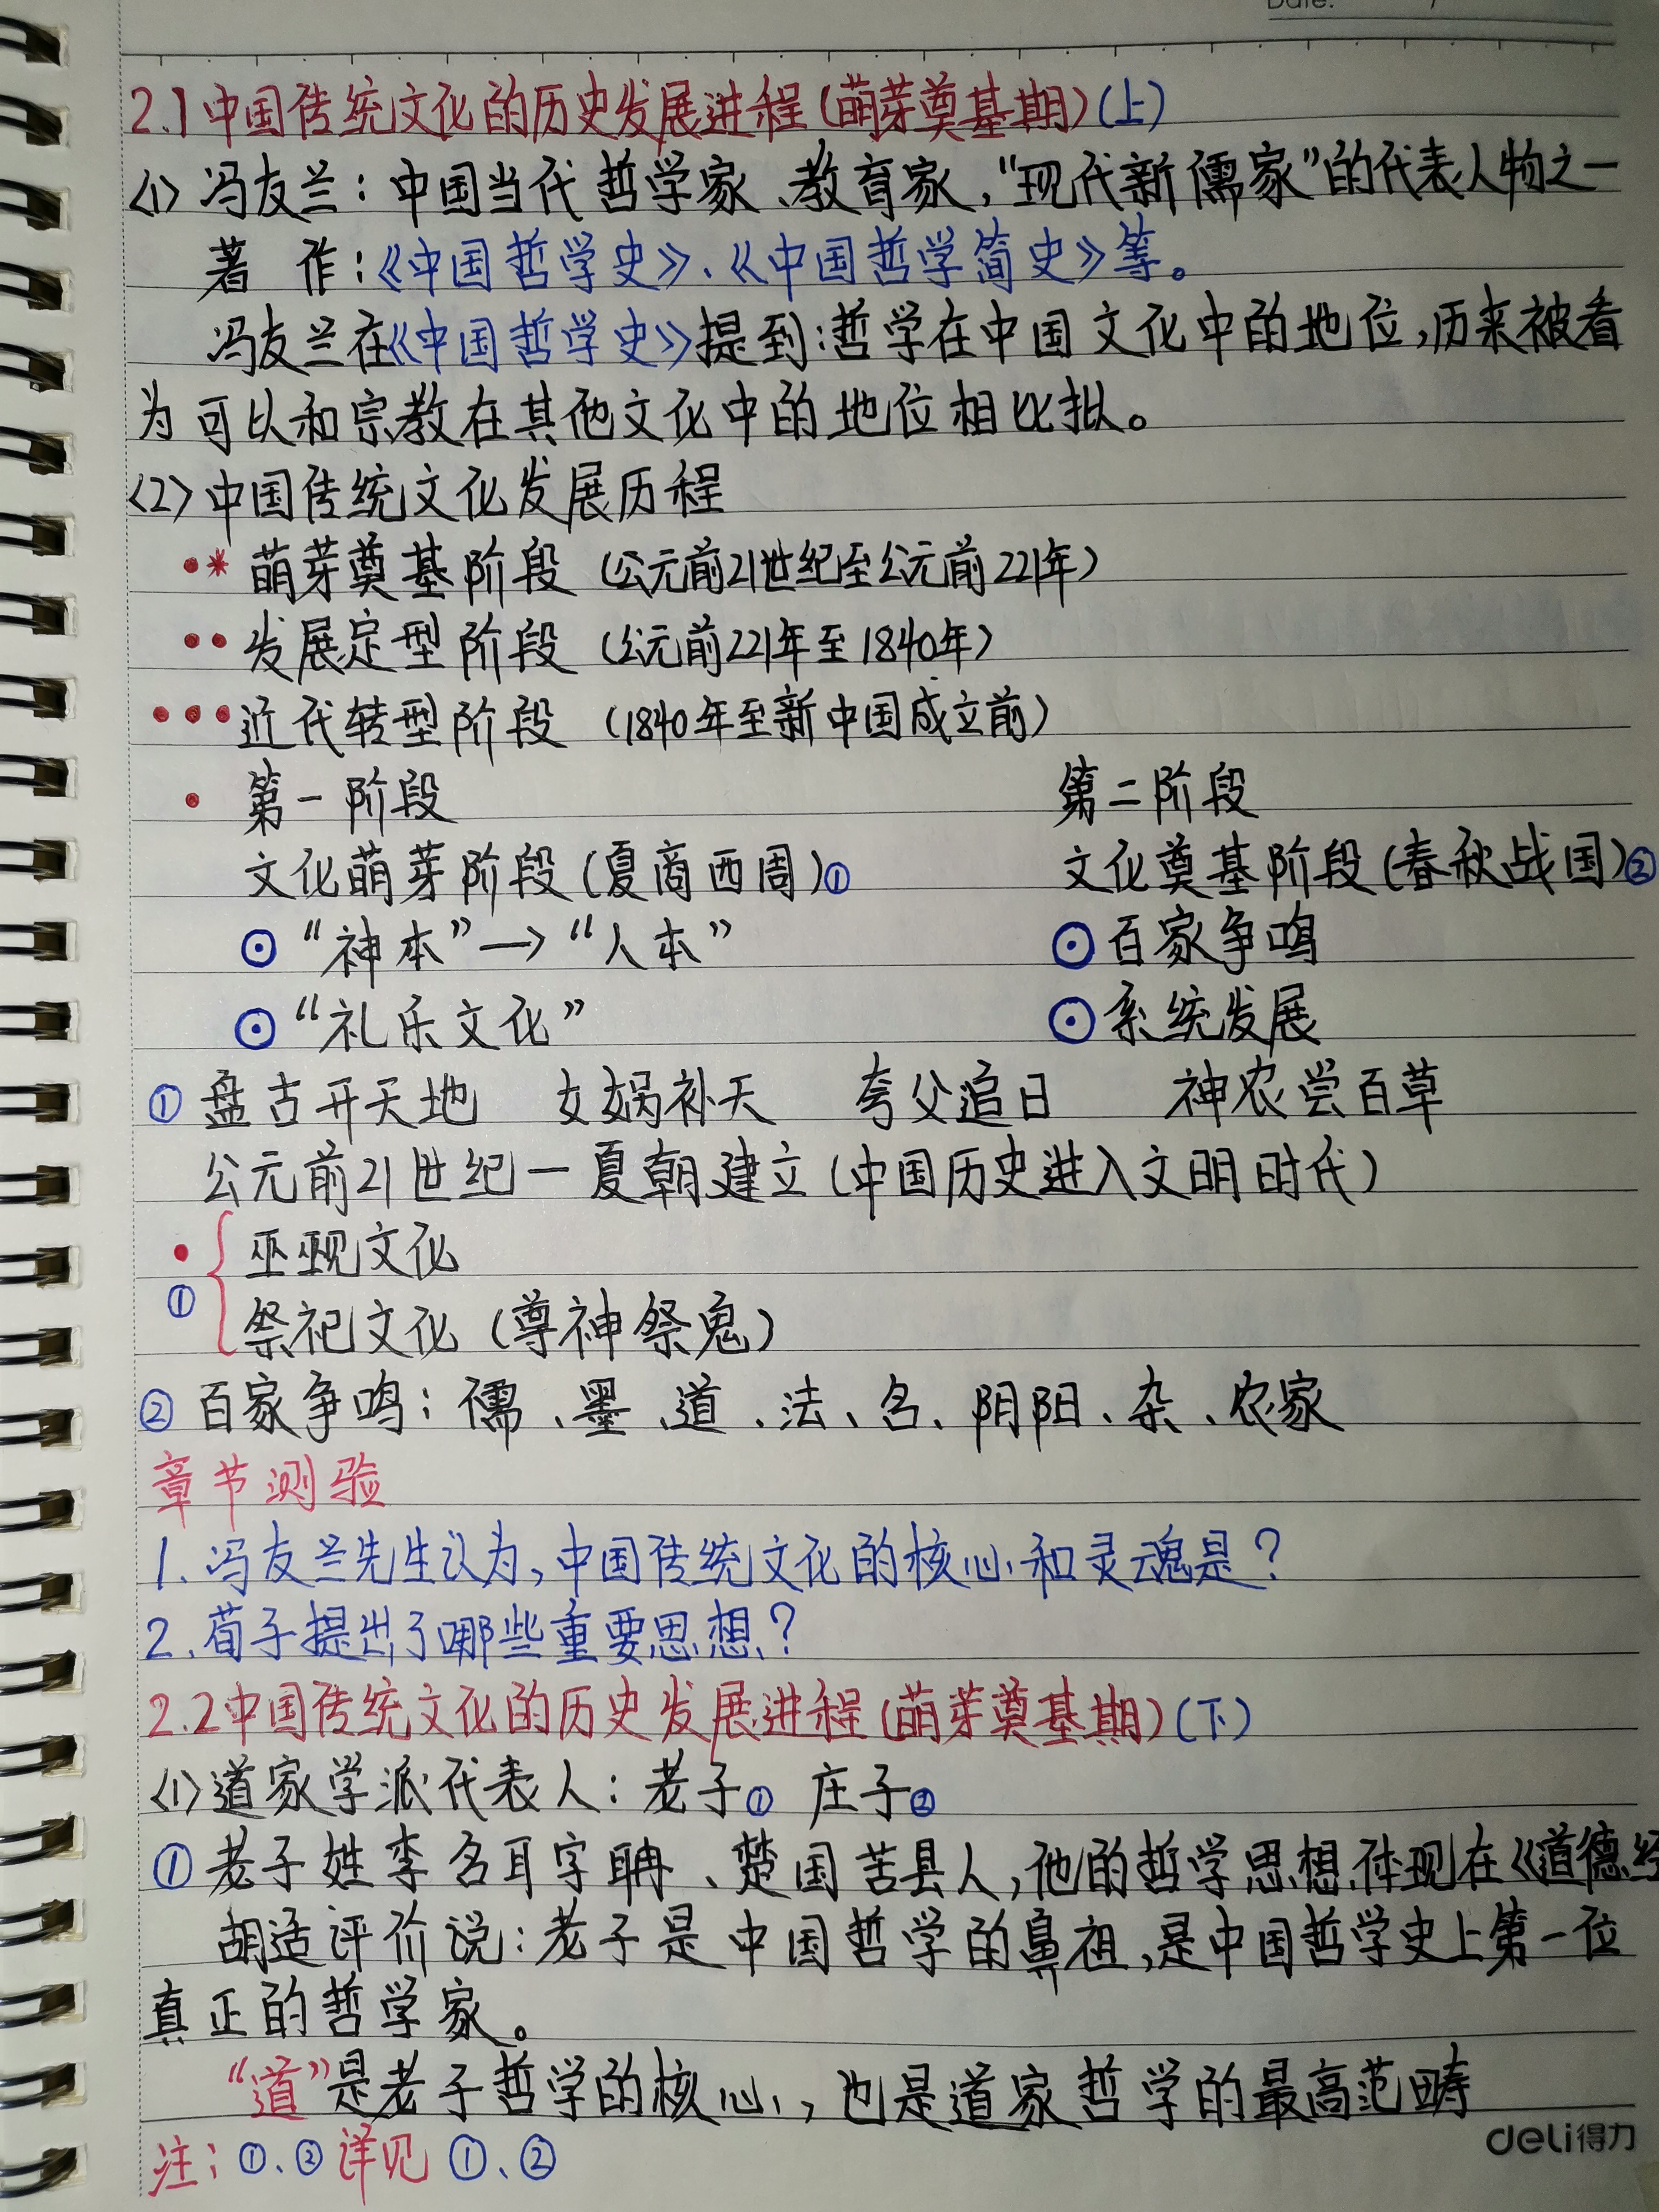 Date.
2.1 中国传统文化的历史发展进程(萌芽奠基期)(上)
<1> 冯友兰：中国当代哲学家、教育家，“现代新儒家”的代表人物之一
著 作：《中国哲学史》、《中国哲学简史》等。
冯友兰在《中国哲学史》提到：哲学在中国文化中的地位，历来被看
为可以和宗教在其他文化中的地位相比拟。
<2> 中国传统文化发展历程
•* 萌芽奠基阶段 (公元前21世纪至公元前221年)
•• 发展定型阶段 (公元前221年至1840年)
••• 近代转型阶段 (1840年至新中国成立前)
• 第一阶段 第二阶段
文化萌芽阶段(夏商西周)① 文化奠基阶段(春秋战国)②
⊙ “神本”→“人本” ⊙ 百家争鸣
⊙ “礼乐文化” ⊙ 系统发展
① 盘古开天地 女娲补天 夸父追日 神农尝百草
公元前21世纪一夏朝建立(中国历史进入文明时代)
• 巫觋文化
① 祭祀文化 (尊神祭鬼)
② 百家争鸣：儒、墨、道、法、名、阴阳、杂、农家
章节测验
1. 冯友兰先生认为，中国传统文化的核心和灵魂是？
2. 荀子提出了哪些重要思想？
2.2 中国传统文化的历史发展进程(萌芽奠基期)(下)
<1> 道家学派代表人：老子① 庄子②
① 老子姓李名耳字聃、楚国苦县人，他的哲学思想体现在《道德经
胡适评价说：老子是中国哲学的鼻祖，是中国哲学史上第一位
真正的哲学家。
“道”是老子哲学的核心，也是道家哲学的最高范畴
注：①、②详见①、②
deli得力